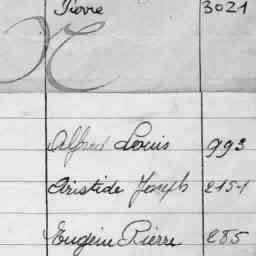 Pierre 3021
N
Alfred Louis 993
Aristide Joseph 2151
Eugène Pierre 285